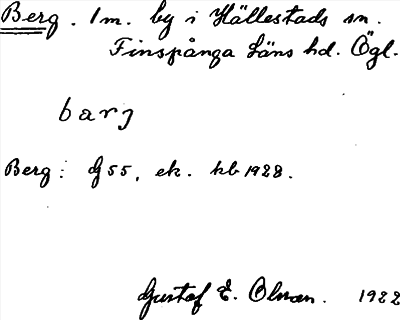 Berg. 1 m. by i Hällestads sn.
Finspånga Läns hd. Ögl.
barj
Berg: G 55, ek. kb 1928.
Gustaf E. Olman. 1922